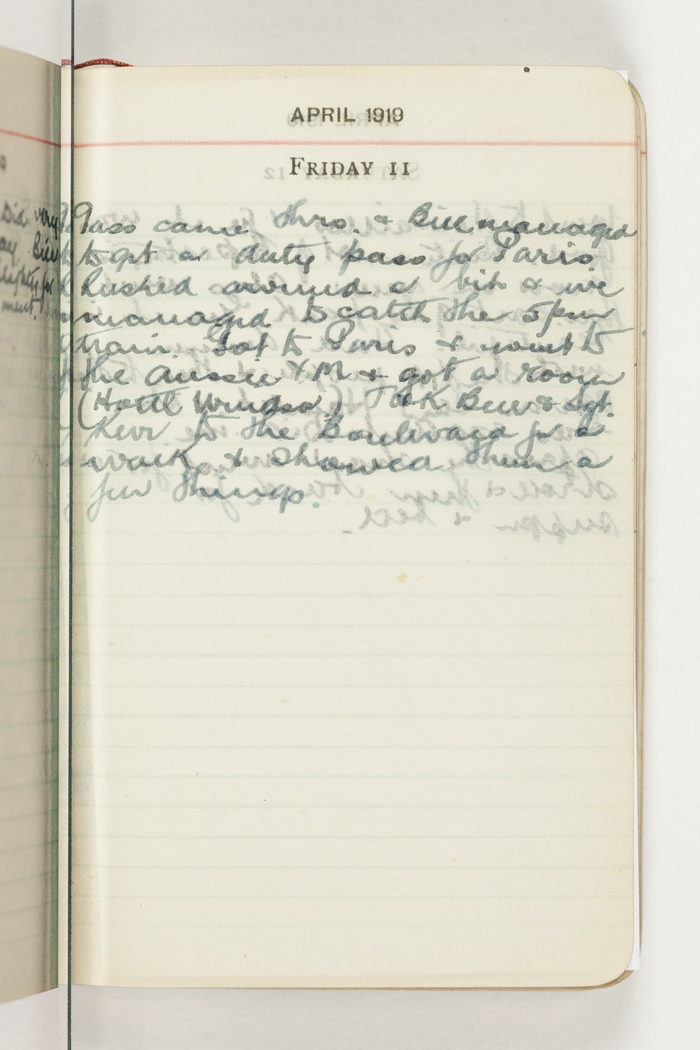 APRIL 1919
FRIDAY 11
Pass came thro. & Bill managed
to get a duty pass for Paris.
Rushed around a bit & we
managed to catch the 5pm
train. Got to Paris & went to
the Aussie YM & got a room
(Hotel Windsor) Took Bill & Sgt.
Kerr to the Boulevard for a
walk & showed them a
few things.